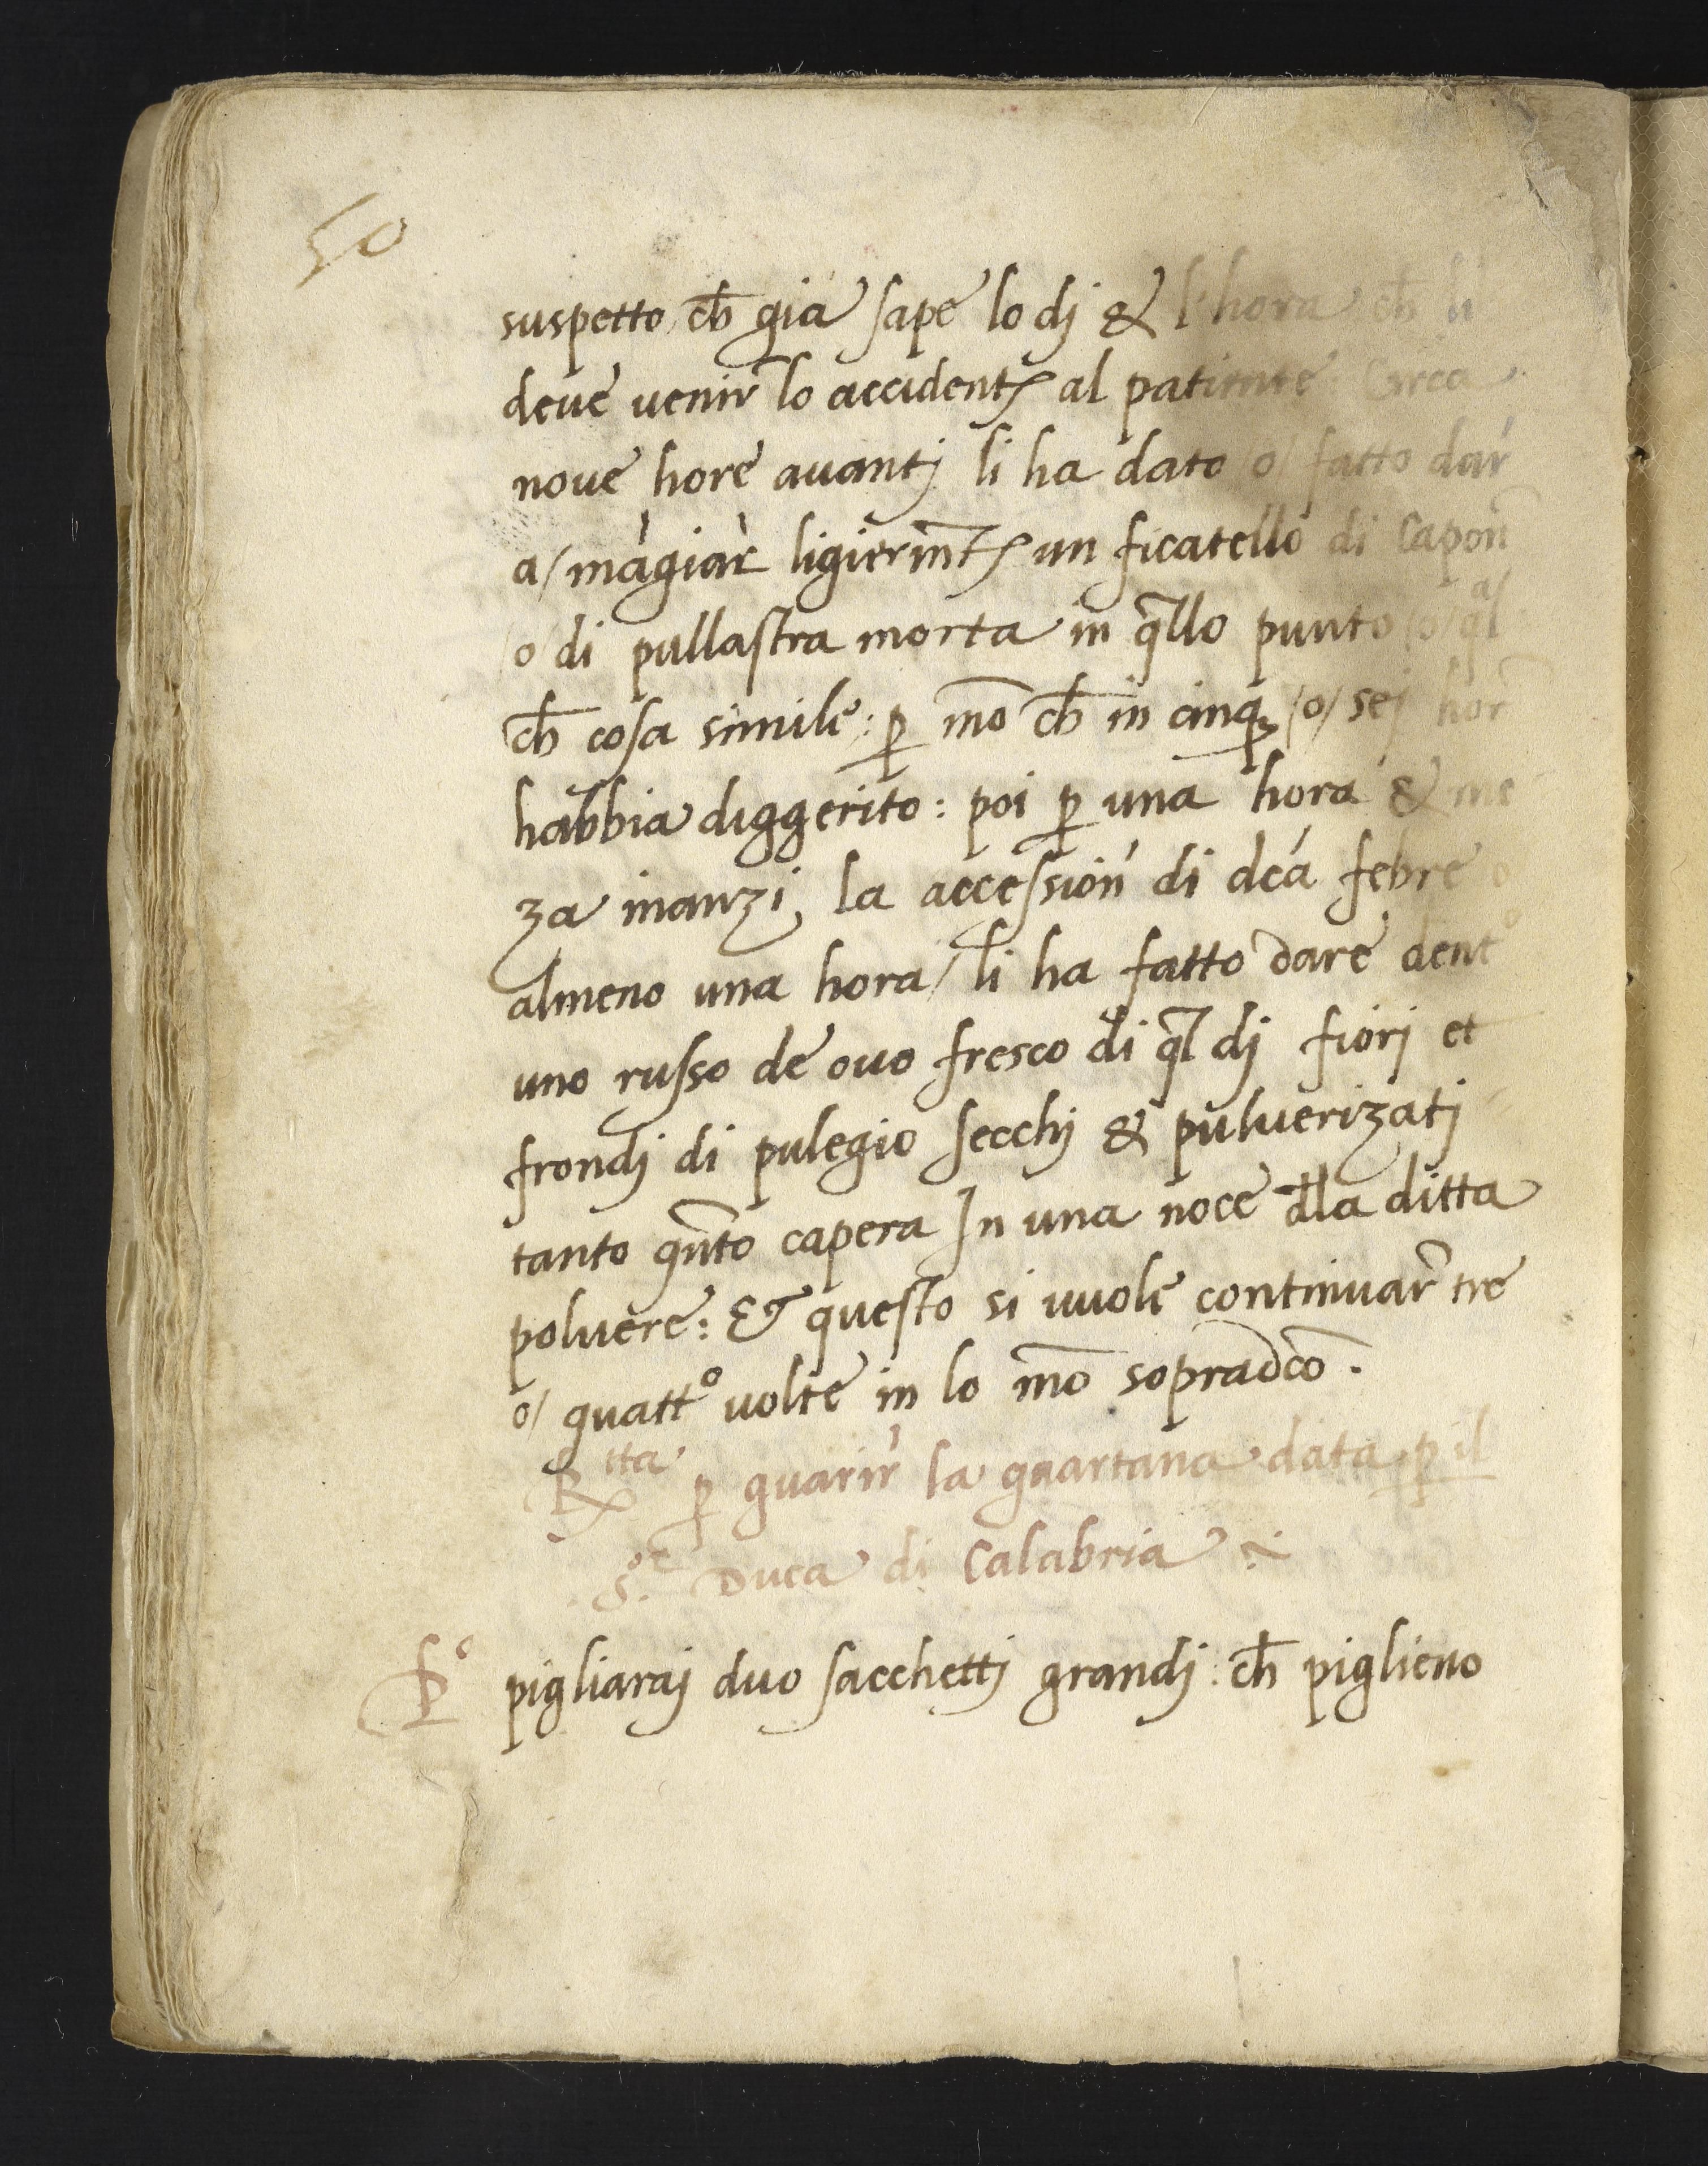 50
suspetto, ch̄ già sape lo dj & l'hora ch̄ li
deue venir̃ lo accidentẽ al patiente: Circa
noue hore auantj li ha dato /o/ fatto dar̃
a/ mãgiar̃ ligiermt̃e un ficatello di Capoñ
/o/ di pullastra morta in q̃llo punto /o/ qᵃl
ch̄ cosa simile: ꝑ mõ ch̄ in cinqꝫ /o/ sej hor̃
habbia diggerito: poi ꝑ una hora & me
za inanzj la accession̄ di dc̃a febre o
almeno una hora/ li ha fatto dare dentº
uno russo de ouo fresco di q̃l dj fiorj et
frondj di pulegio secchj & puluerizatj
tanto qñto capera In una noce d̃lla ditta
poluere: & questo si vuole continuar̃ tre
o/ quattº uolte in lo mõ sopradc̃o.
Rᵗᵗᵃ ꝑ guarir̃ la quartana data ꝑ il
S.ᵒʳᵉ Duca di Calabria
Pº pigliaraj duo sacchettj grandj: ch̄ piglieno